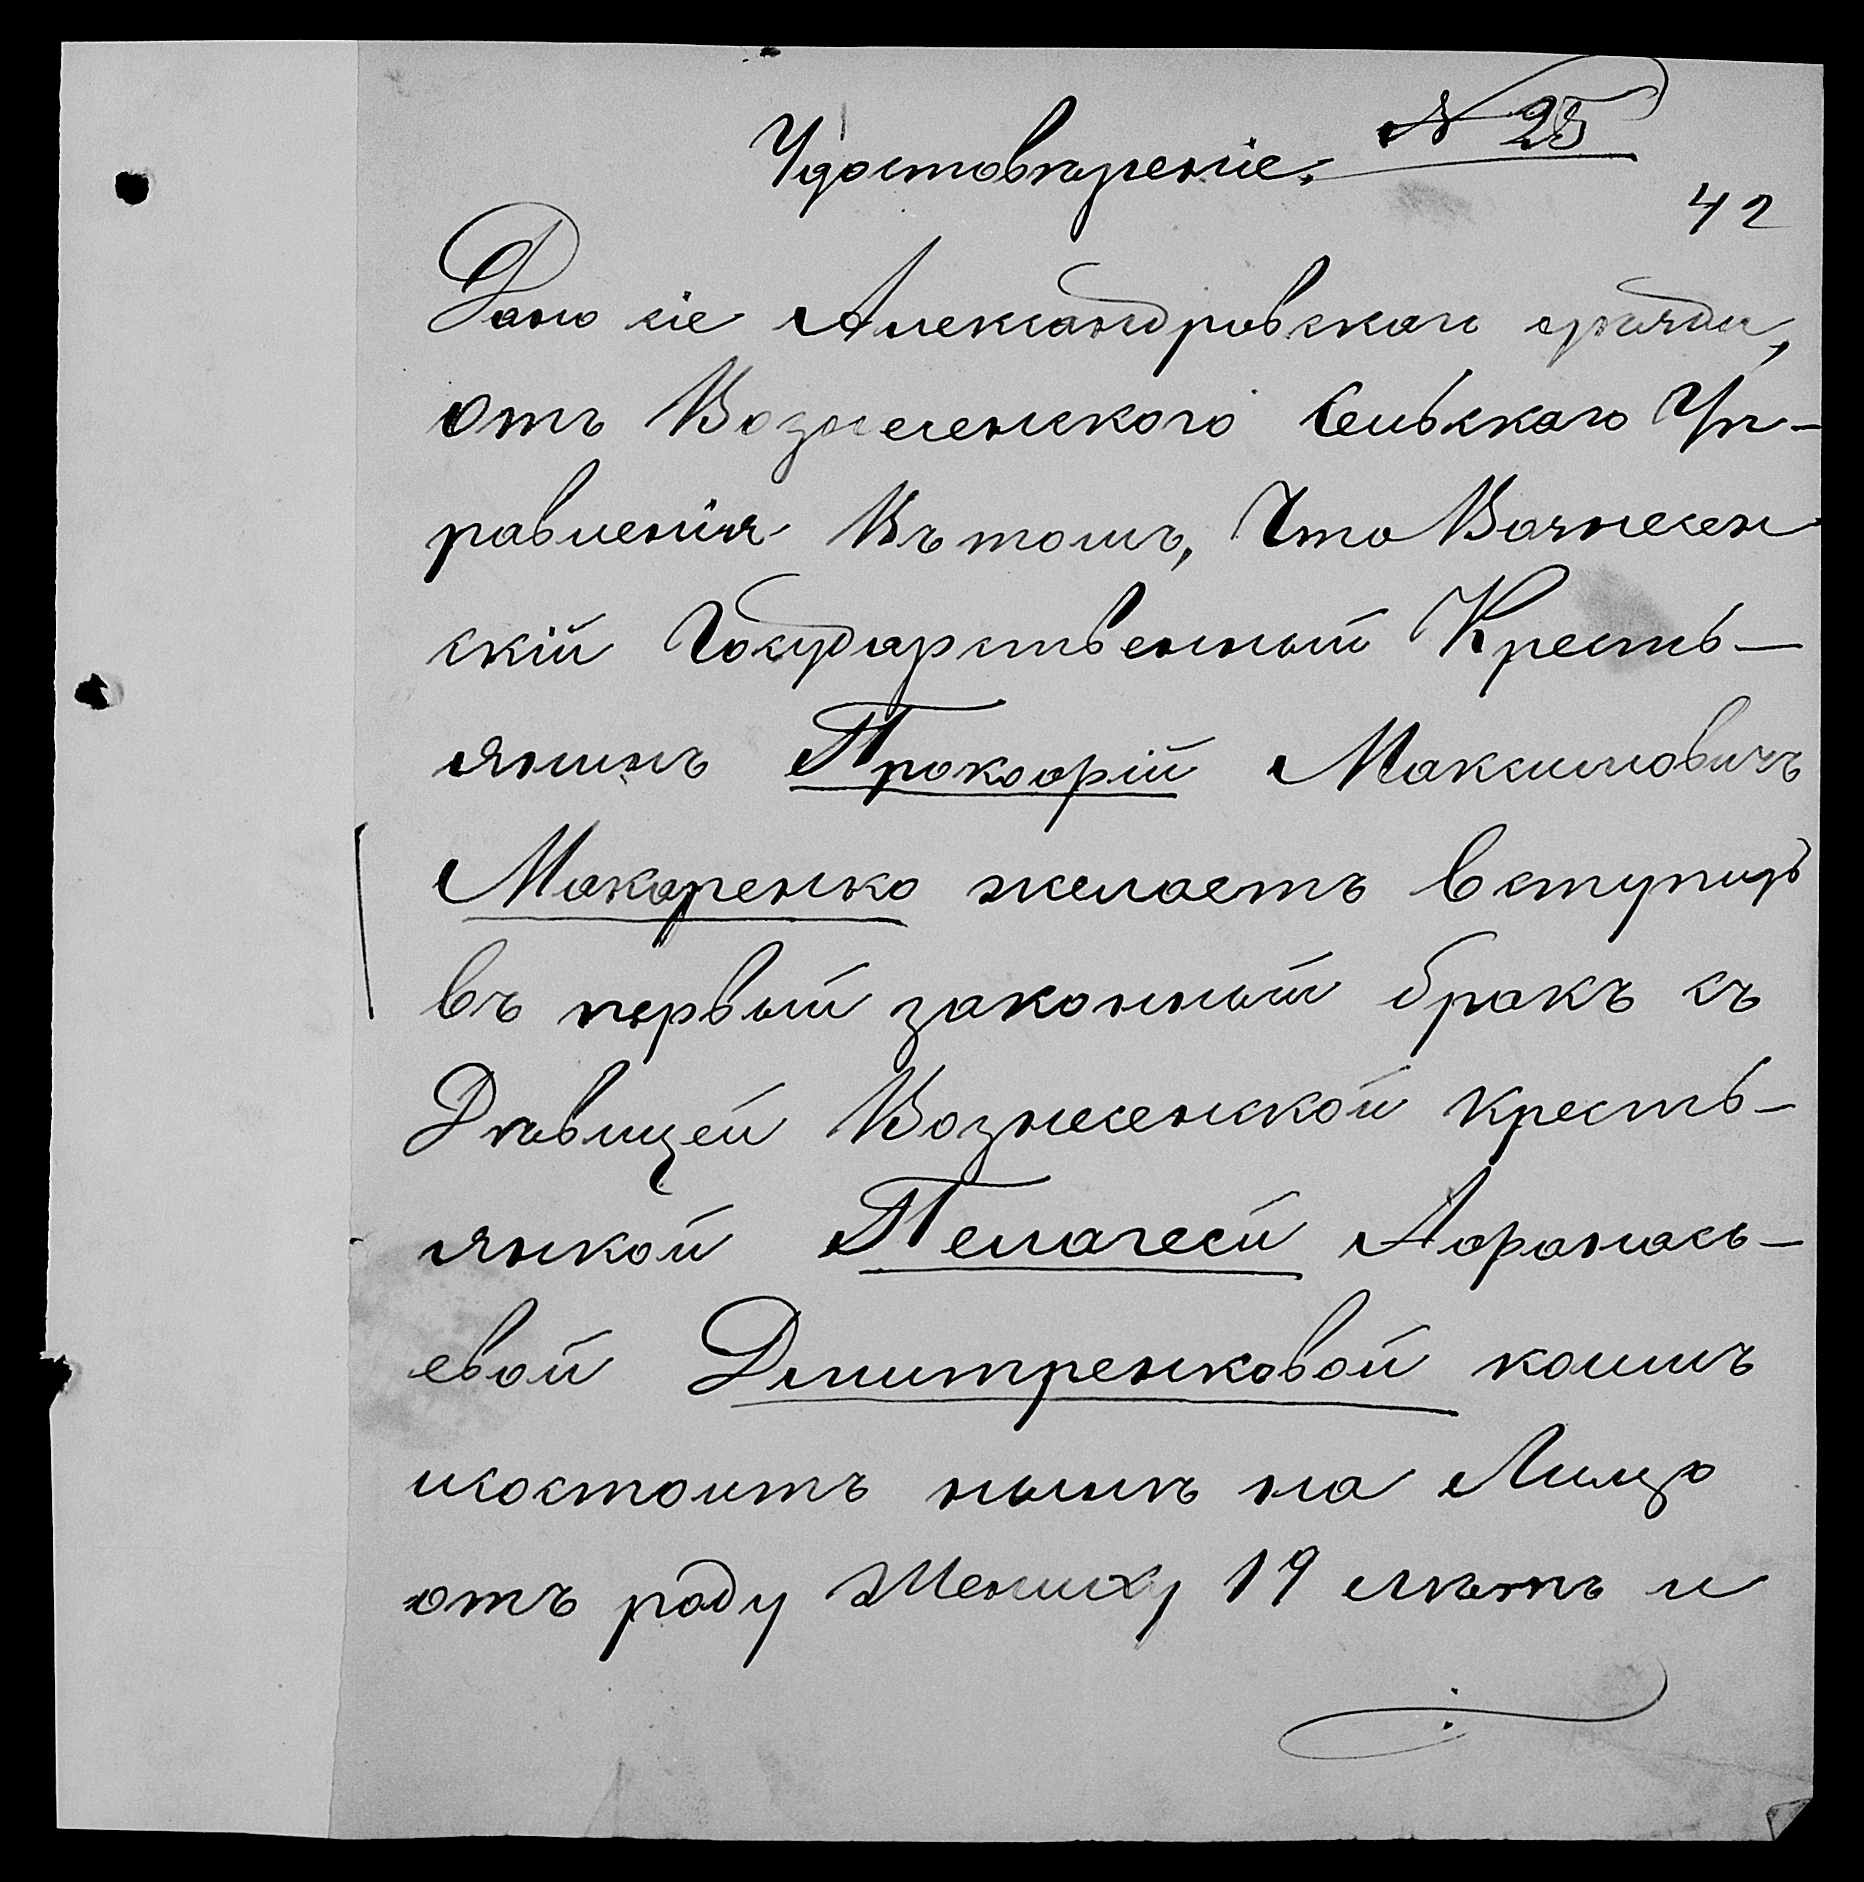 Удостовѣреніе. № 25
42
Дано сіе Александровскаго уѣзда,
отъ Вознесенского Сельскаго Уп-
равленія Въ томъ, Что Вознесен
скій Государственный Кресть-
янинъ Прокофій Максимовичъ
Макаренко желаетъ вступить
въ первый законный бракъ съ
Дѣвицей Вознесенской кресть-
янкой Пелагеей Афанась-
евой Дмитренковой коимъ
исостоитъ нынѣ на Лицо
отъ роду Жениху 19 лѣтъ и